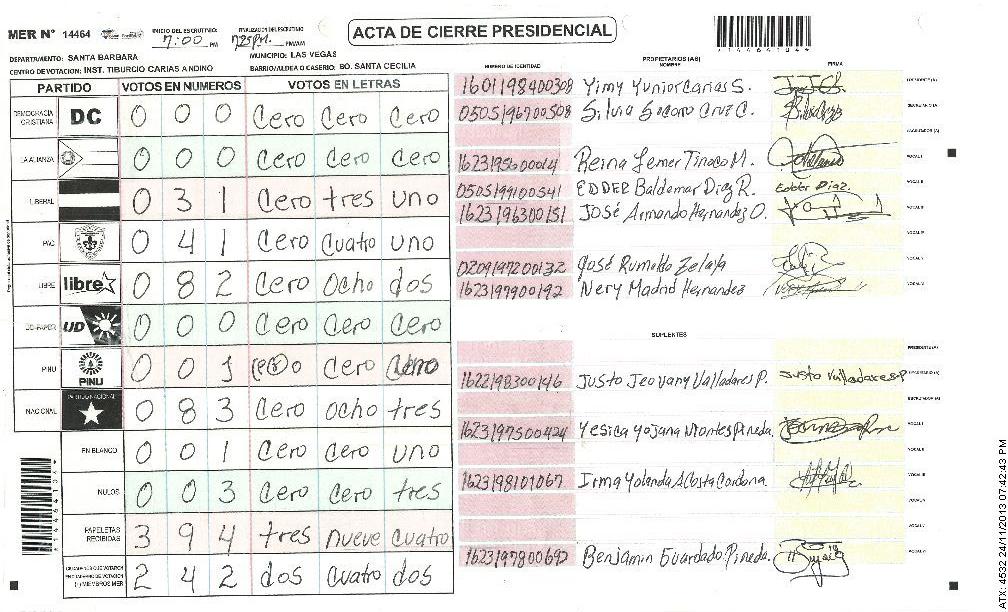 MER N° 14464
INICIO DEL ESCRUTINIO: 7:00 PM
FINALIZACION DEL ESCRUTINIO: 7:25 P.M. PM/AM
ACTA DE CIERRE PRESIDENCIAL
DEPARTAMENTO: SANTA BARBARA MUNICIPIO: LAS VEGAS
CENTRO DE VOTACION: INST. TIBURCIO CARIAS ANDINO BARRIO/ALDEA O CASERIO: BO. SANTA CECILIA
PARTIDO VOTOS EN NUMEROS VOTOS EN LETRAS
DEMOCRACIA CRISTIANA DC 0 0 0 Cero Cero Cero
LA ALIANZA 0 0 0 Cero Cero Cero
LIBERAL 0 3 1 Cero tres uno
PAC 0 4 1 Cero Cuatro uno
LIBRE libre 0 8 2 Cero ocho dos
UD-FAPER UD 0 0 0 Cero Cero Cero
PINU PINU 0 0 1 Cero
NACIONAL PARTIDO NACIONAL 0 8 3 Cero ocho tres
EN BLANCO 0 0 1 Cero Cero uno
NULOS 0 0 3 Cero Cero tres
PAPELETAS RECIBIDAS 3 9 4 tres nueve cuatro
CIUDADANOS QUE VOTARON EN CUADERNO DE VOTACION (+) MIEMBROS MER 2 4 2 dos cuatro dos
NUMERO DE IDENTIDAD PROPIETARIOS (AS) NOMBRE FIRMA
1601198400308 Yimy Yunior Carias S. PRESIDENTE (A)
0505196700508 Silvia Socorro Cruz C. SECRETARIO (A)
ESCRUTADOR (A)
1623195600014 Reina Lemer Tinoco M. VOCAL I
0505199100541 EDDER Baldomar Diaz R. Edder Diaz. VOCAL II
1623196300151 José Armando Hernandez O. VOCAL III
VOCAL IV
0209197200132 José Rumaldo Zelaya VOCAL V
1623197900192 Nery Madrid Hernandez VOCAL VI
SUPLENTES
PRESIDENTE (A)
1622198300146 Justo Jeovany Valladares P. Justo Valladares P SECRETARIO (A)
ESCRUTADOR (A)
1623197500424 Yesica Yojana Montes Pineda. VOCAL I
VOCAL II
1623198101067 Irma Yolanda Acosta Cardona. VOCAL III
VOCAL IV
VOCAL V
1623197800692 Benjamin Guardado Pineda. VOCAL VI
ATX: 4532 24/11/2013 07:42:43 PM